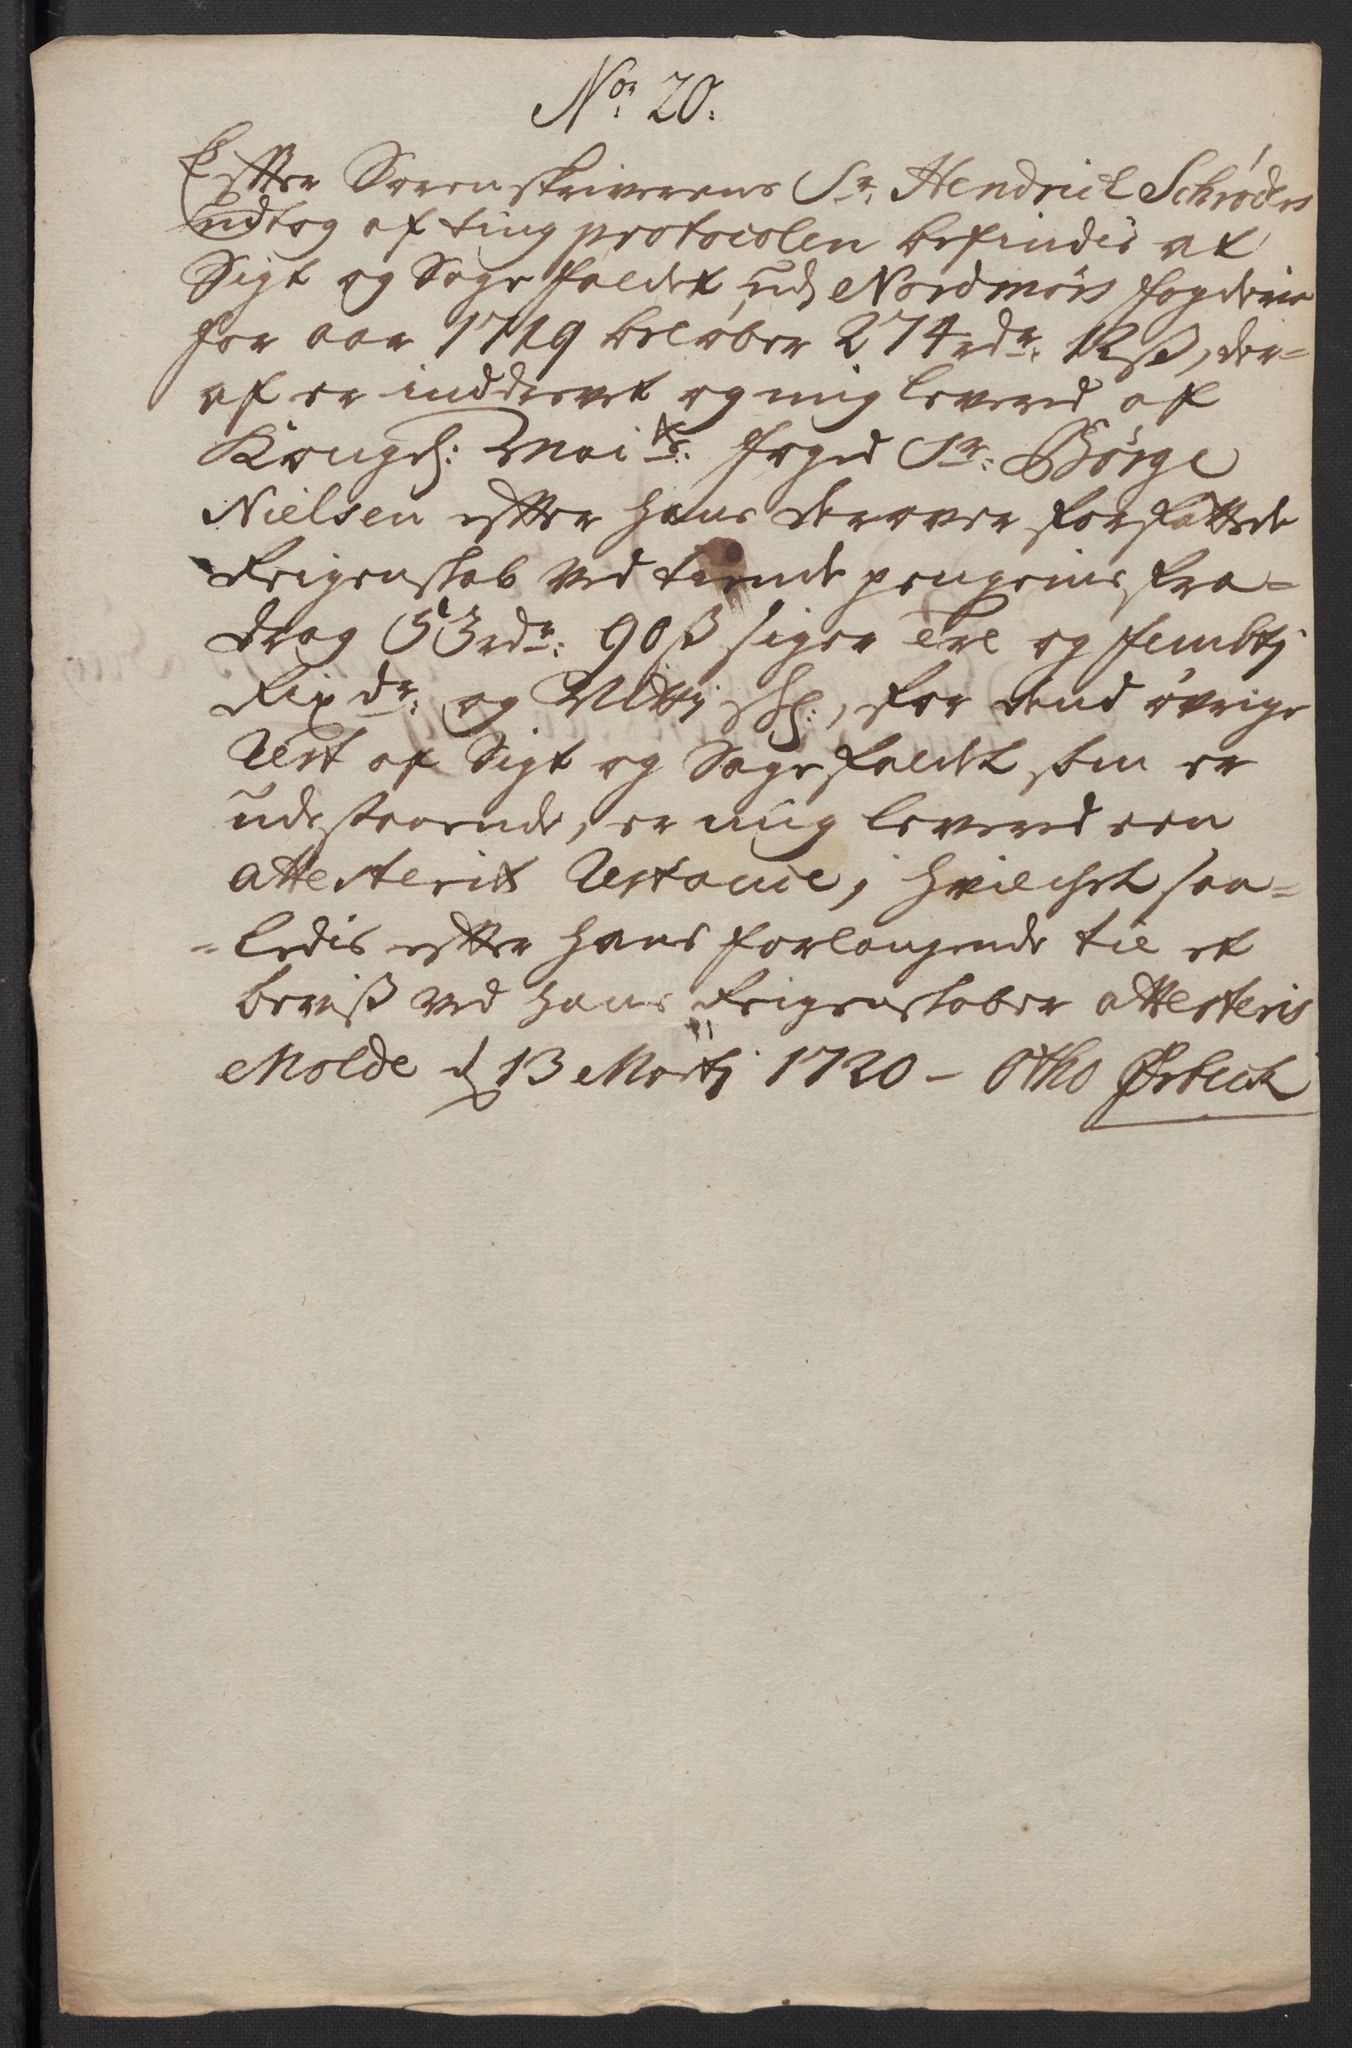 No: 20:
Efter Sorenskriverens Sr: Hendrich Schrøders
udtog af ting protocolen befindis at
Sigt og Sagefaldet udj Nordmørs fogderie
for aar 1719 beløber 274 rdr: 12 ß, der=
af er inddrevet og mig levered af
Kongel: Maits: foged Sr: Børge
Nielsen efter hans derover forfattede
Reigenskab ved tiende pengenis fra=
drag 53 rdr: 90 ß siger tre og fembtj
Rix dr: og Nittj sk:, for dend øvrige
Rest af Sigt og Sagefaldet som er
udestaaende, er mig levered een
attesterit Restance, hvilchet saa=
=ledis efter hans forlangende til et
beviß ved hans Reigenskaber attesteris
Molde d 13 Martj 1720 - Otho Ørbech